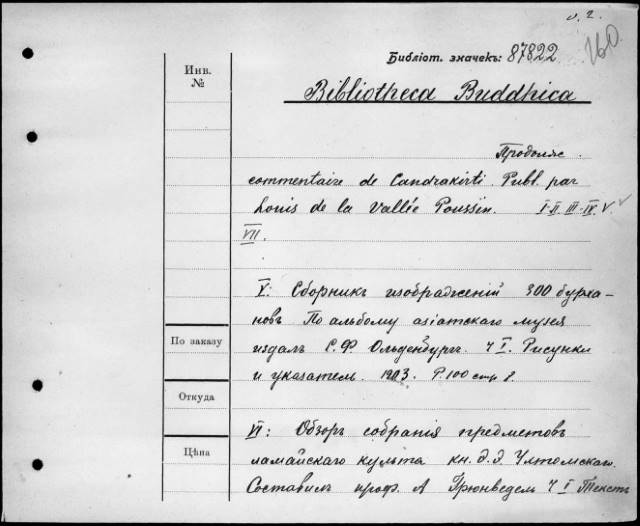 v. 2.
Библіот. значекъ: 87822
160
Инв.
№
Bibliotheca Buddhica
Продолж.
commentaire de Candrakirti Publ. par
Louis de la Vallée Poussin. I-II-III-IV. V
VII.
V: Сборникъ изображеній 300 бурха-
новъ По альбому азіатскаго музея
По заказу
издалъ С. Ф. Ольденбургъ. Ч I. Рисунки
и указатель. 1903. Р. 100 стр 8.
Откуда
VI: Обзоръ собранія предметовъ
Цѣна
ламайскаго культа кн. Э. Э. Ухтомскаго.
Составилъ проф. А Грюнведель Ч I Текстъ